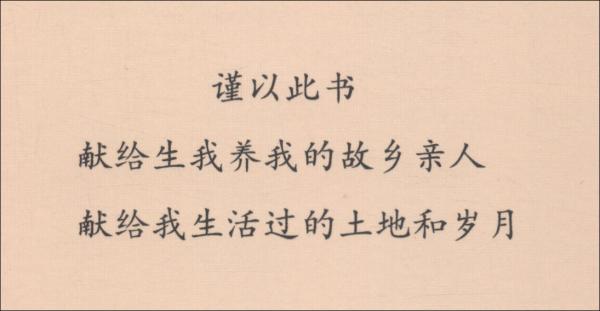 谨以此书
献给生我养我的故乡亲人
献给我生活过的土地和岁月